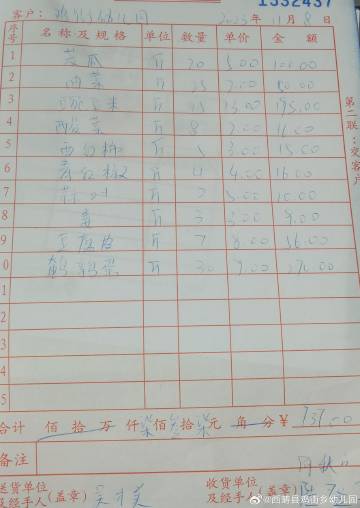 1332437
客户: 2023年11月8日
序号 名称及规格 单位 数量 单价 金额
1 黄瓜 斤 20 5.00 100.00
2 油菜 斤 25 2.00 50.00
3 斤 15 13.00 195.00
4 酸菜 斤 8 2.00 16.00
5 西红柿 斤 5 3.00 15.00
6 斤 4 4.00 16.00
7 斤 2 5.00 10.00
8 姜 斤 3 3.00 9.00
9 豆腐皮 斤 7 8.00 56.00
0 鹌鹑蛋 斤 30 9.00 270.00
1
2
3
4
5
合计 佰拾万仟柒佰叁拾柒元角分¥ 737.00
备注
送货单位及经手人(盖章)
收货单位及经手人(盖章)
第二联:交客户
@西畴县鸡街乡幼儿园